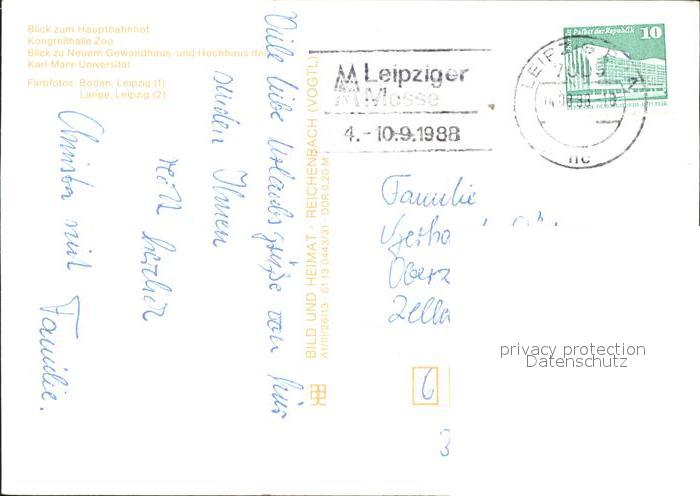 Blick zum Hauptbahnhof
Kongreßhalle Zoo
Blick zu Neuem Gewandhaus und Hochhaus der
Karl-Marx-Universität
Farbfotos: Boden, Leipzig (1)
Lange, Leipzig (2)
Viele liebe Urlaubsgrüße von hier
senden Ihnen
recht herzlich
Christa mit Familie.
BILD UND HEIMAT · REICHENBACH (VOGTL)
A1/III/26/13 · 01 13 0443/31 · DDR 0,20 M
MM Leipziger
MM Messe
4.-10.9.1988
LEIPZIG
7009
nc
Palast der Republik 10
Familie
Gerha
Ober
Zella
6
3
privacy protection
Datenschutz